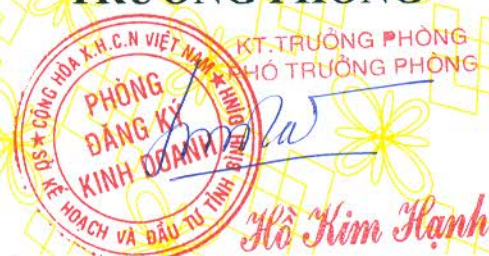 TRƯỞNG PHÒNG
KT.TRƯỞNG PHÒNG
PHÓ TRƯỞNG PHÒNG
CỘNG HÒA X.H.C.N VIỆT NAM
PHÒNG
ĐĂNG KÝ
KINH DOANH
SỞ KẾ HOẠCH VÀ ĐẦU TƯ TỈNH BÌNH ĐỊNH
Hồ Kim Hạnh